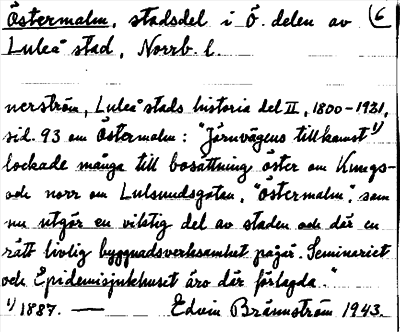 Östermalm, stadsdel i Ö. delen av (6
Luleå stad, Norrb. l.
nerström, Luleå stads historia del II, 1800-1921,
sid. 93 om Östermalm: "Järnvägens tillkomst ¹)
lockade många till bosättning öster om Kungs-
och norr om Lulsundsgatan, "Östermalm", som
nu utgör en viktig del av staden och där en
rätt livlig byggnadsverksamhet pågår. Seminariet
och Epidemisjukhuset äro där förlagda."
¹) 1887. — Edvin Brännström 1943.